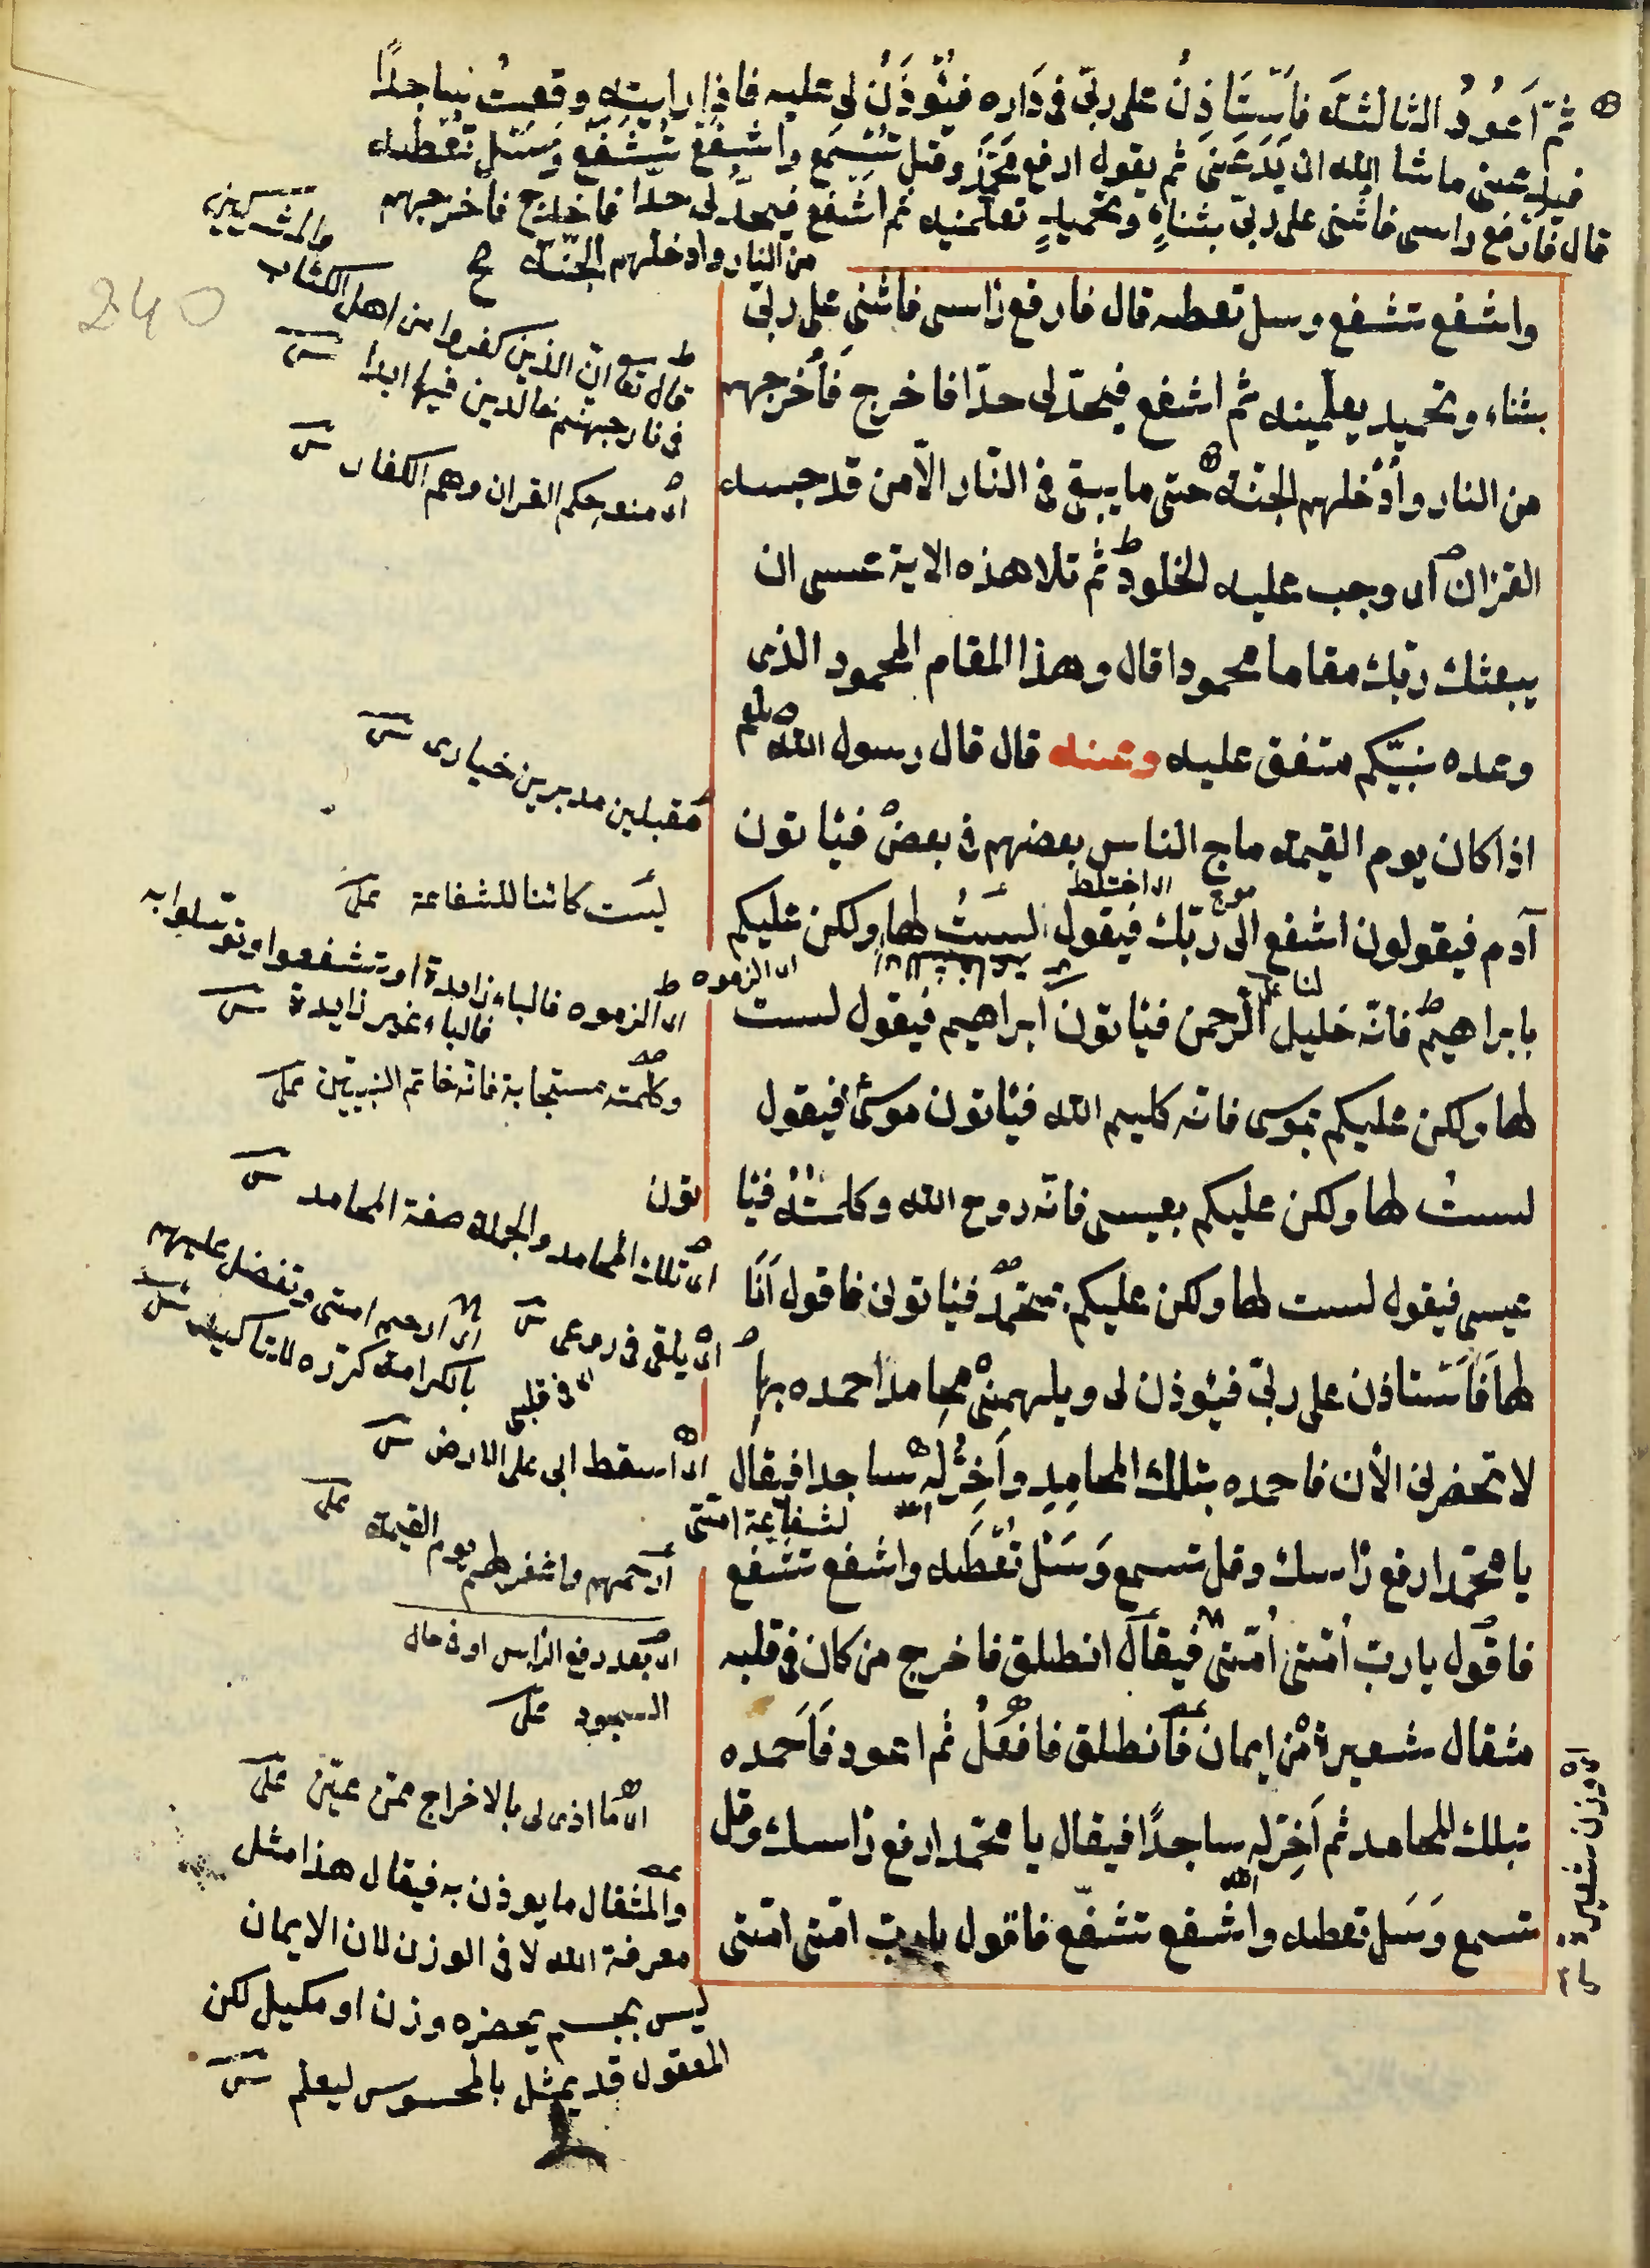 ثم اَعُودُ الثالثة فاَستَاذِنُ على ربّى فى دَاره فيُؤذَنُ لى عليه فاذا رايته وقعتُ ساجدًا
فيدعنى ماشا الله ان يَدَعَنىَ ثم يقول ارفع محمّدُ وقل تُسْمع واشفع تُشَفَّع وَسَل تعطه
قال فارفع راسى فاثنى على ربّى بثناءٍ وتحميدٍ تعلّمنيه ثم اشفع فيحدّ لى حدّا فاخرج فاخرجهم
من النار وادخلهم الجنّة صح
واشفع تشفع وسل تعطه قال فارفع راسى فاثنى على ربّى
بثناء وتحميد يعلّمنيه ثم اشفع فيحدّ لى حدّا فاخرج فاُخرجهم
من النار واُدْخلهم الجنّة حتى ما يبقى فى النّار الّا من قد حبسه
القران اى وجب عليه الخلود ثم تلا هذه الاية عسى ان
يبعثك ربّك مقاما محمودا قال وهذا المقام المحمود الذى
وعده نبيّكم متفق عليه وعنه قال قال رسول الله صلعم
اذا كان يوم القيمة ماج الناس بعضهم فى بعض فيئاتون
اى اختلط موج
آدم فيقولون اشفع الى ربّك فيقول لستُ لها ولكن عليكم
لنا
اى الزموه
بابراهيم فانّه خليل الرحمن فيئاتون ابراهيم فيقول لست
لها ولكن عليكم بموسى فانّه كليم الله فيئاتون موسى فيقول
لستُ لها ولكن عليكم بعيسى فانّه روح الله وكلمته فيئا تون
عيسى فيقول لست لها ولكن عليكم بمحمّد فيئاتونى فاقول اَنَا
لها فاَستاذن على ربّى فيئوذن لى ويلهمنى محامد احمده بها
لا تحضرنى الأن فاحمده بتلك المحامِدِ واَخِرُّ له ساجدا فيقال
لشفاعة امّتى
يا محمّد ارفع راسك وقل تسمع وَسَل تُعْطَه واشفع تشفع
فاقول يا ربّ اُمّتى اُمّتى فيقال انطلق فاخرج من كان فى قلبه
مثقال شعيرة من ايمان فانطلق فافعَلُ ثم اعود فاَحمده
بتلك المحامد ثم اَخِرّ له ساجدًا فيقال يا محمّد ارفع راسك وقل
الله
تسمع وَسَل تعطه واشفع تشفّع فاقول يا ربّ امّتى امّتى
240
والمشركين
قال تعا انّ الذين كفروا من اهل الكتاب
فى نار جهنم خالدين فيها ابدا
اى منعه حكم القران وهم الكفار
مقبلين مدبرين خيارى
ليست كائنا للشفاعة على
اى الزموه فالباء زايدة او تشفعوا وتوسلوا به
فالباء غير زايدة
وكلمته مستجابة فانّه خاتم النبيّين على
اى تلك المحامد والجملة صفة المحامد
اى يلقى فى روعى
اى فى قلبى
اى ارحم امتى وتفضل عليهم
بالكرامة كرّره للتاكيد
اى اسقط ابى على الارض
ارحمهم واشفر لهم يوم القيمة على
اى بعد رفع الراس او فى حال
السجود على
اى ما اذن لى بالاخراج ممّن عيّن على
والمثقال ما يوذن به فيقال هذا مثل
معرفة الله لا فى الوزن لان الايمان
ليس بجسم يحضره وزن او مكيل لكن
المعقول قد يمثل بالمحسوس ليعلم
اى وزن شعيرة